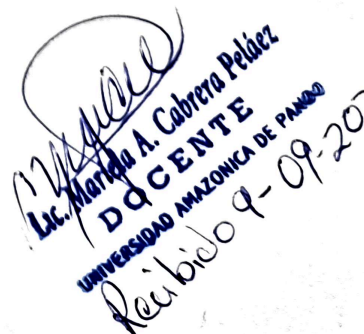 Lic. Mariela A. Cabrera Peláez
DOCENTE
UNIVERSIDAD AMAZONICA DE PANDO
Recibido 9-09-20